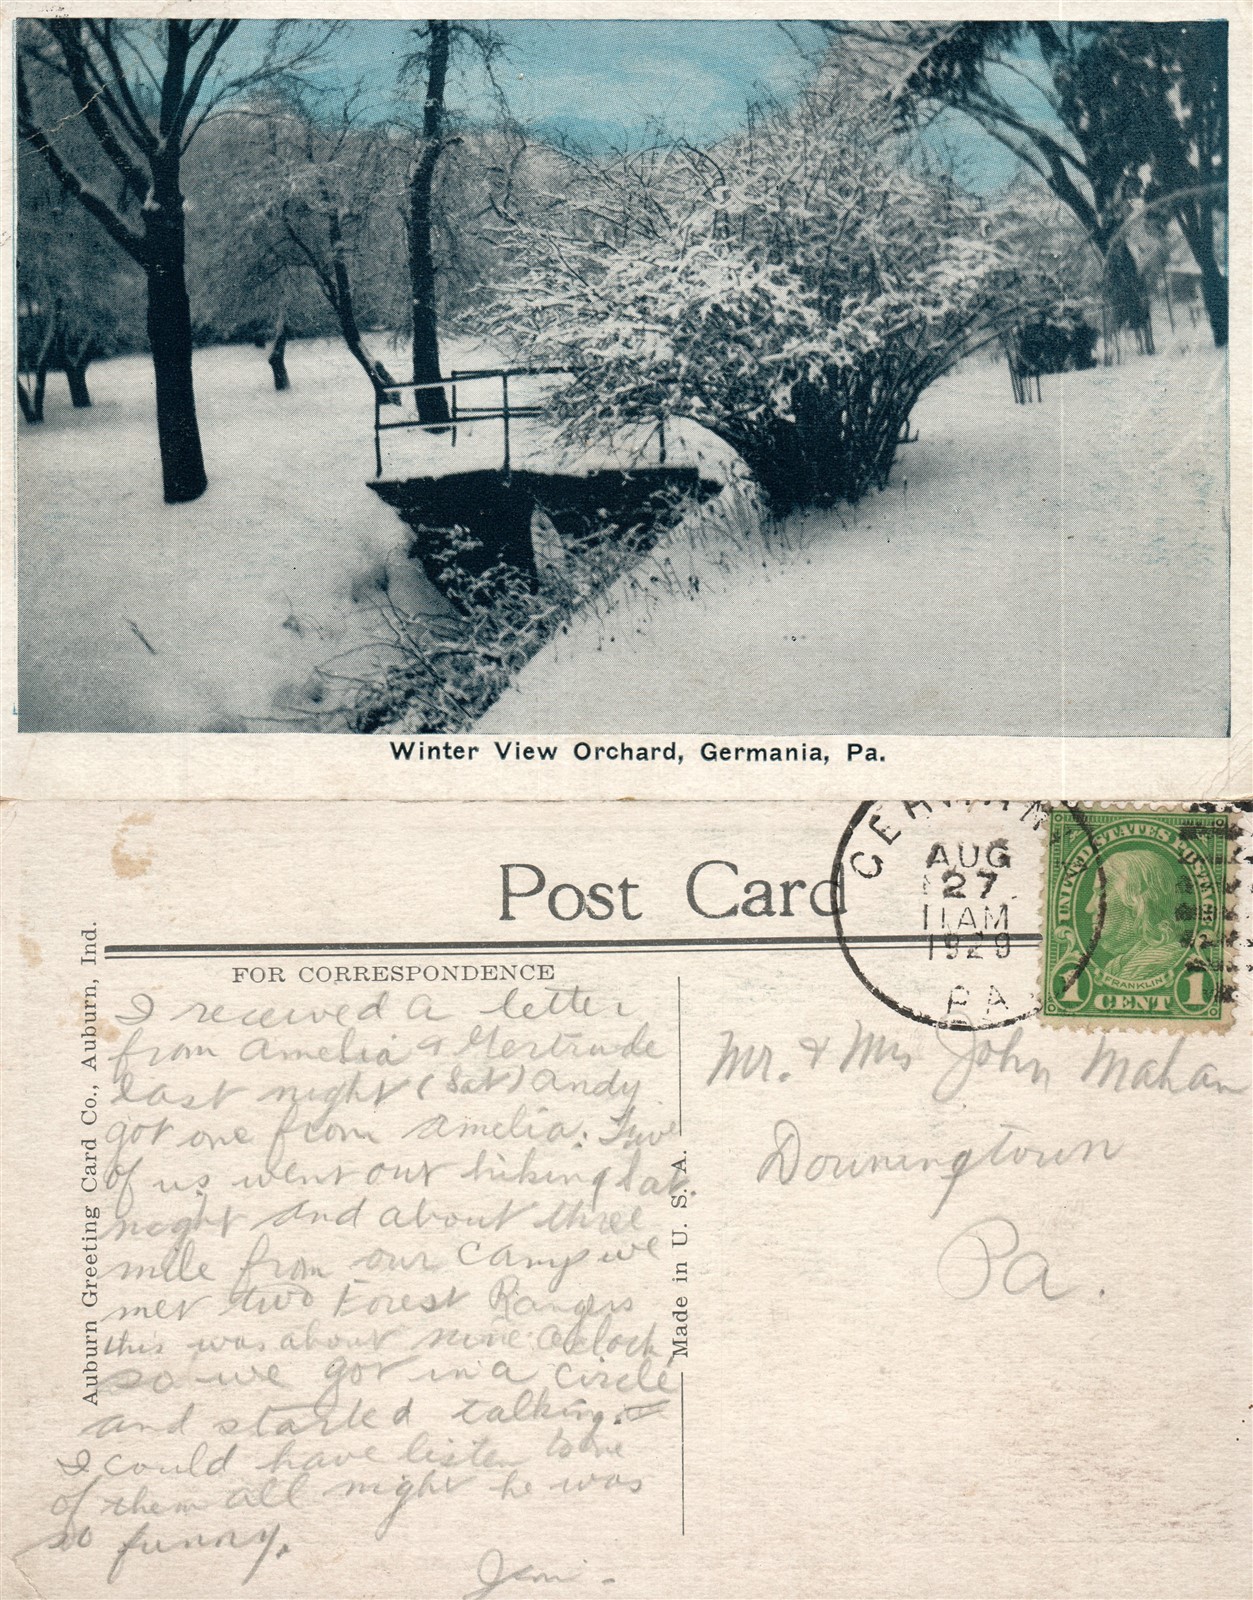 Winter View Orchard, Germania, Pa.
Post Card
AUG
27
11AM
1929
PA
UNITED STATES POSTAGE
FRANKLIN
1 CENT 1
FOR CORRESPONDENCE
Auburn Greeting Card Co., Auburn, Ind.
Made in U. S. A.
I received a letter
from Amelia & Gertrude
last night (Sat) Andy
got one from Amelia. Five
of us went out hiking Sat.
night and about three
mile from our Camp we
met two Forest Rangers
this was about nine oclock,
so we got in a circle
and started talking.
I could have listen to one
of them all night he was
so funny.
Jim.
Mr. & Mrs John Mahan
Downingtown
Pa.